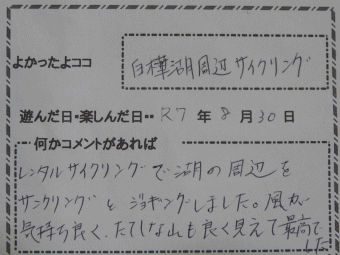 よかったよココ
白樺湖周辺サイクリング
遊んだ日・楽しんだ日・・R7年8月30日
何かコメントがあれば
レンタルサイクリングで湖の周辺を
サイクリングとジョギングしました。風が
気持ち良く、たてしな山も良く見えて最高で
した